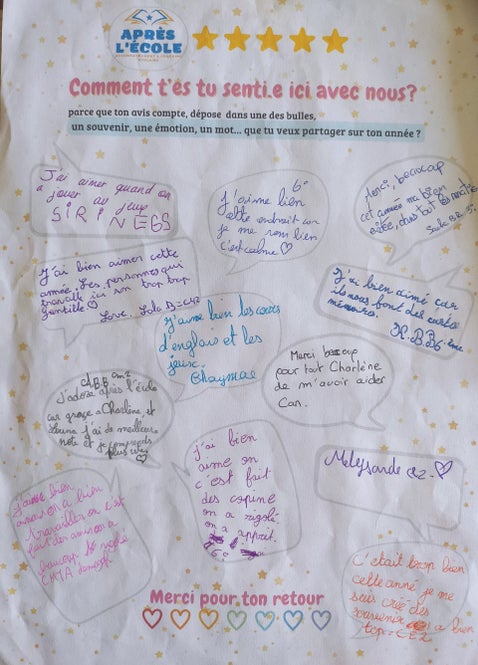 APRÈS
L'ÉCOLE
Comment t'es tu senti.e ici avec nous?
parce que ton avis compte, dépose dans une des bulles,
un souvenir, une émotion, un mot... que tu veux partager sur ton année ?
J'ai aimer quand on
a jouer au jeux
SIRINEGS
6e
j'aime bien
cette endroit car
je me sens bien
c'est calme ♡
Merci, beaucoup
cet année ma bien
aidée, dans tout les matières
J'ai bien aimer cette
année, Les personnes qui
travaille ici son trop trop
gentille ♡
Love, Lola D=CM2
J'ai bien aimé car
ils nous font des cartes
mémoires.
R.B.B 6ème
j'aime bien les cours
d'englais et les
jeux.
Chaymae
Merci beaucoup
pour tout Charlène
de m'avoir aider
Can.
B.B cm2
j'adore après l'école
car grace a Charlène et
j'ai de meilleurs
note et je comprends
plus vite
♡
j'ai bien
aimé on
c'est fait
des copine
on a rigolé
on a apprit.
Melysande ce2. ♡
j'aime bien
on a bien
travailler on c'est
fait des amis on a
beaucoup
c'était trop bien
cette anné je me
suis créé des
souvenir
on a bien
top = CE2
Merci pour ton retour